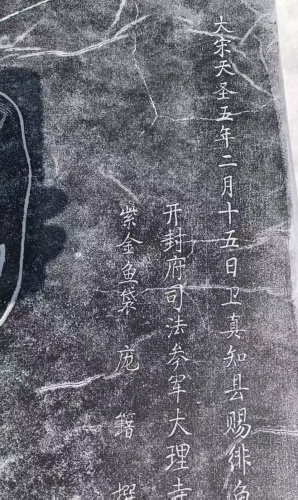 大宋天圣五年二月十五日卫真知县赐绯鱼
开封府司法参军大理寺
紫金鱼袋庞籍撰